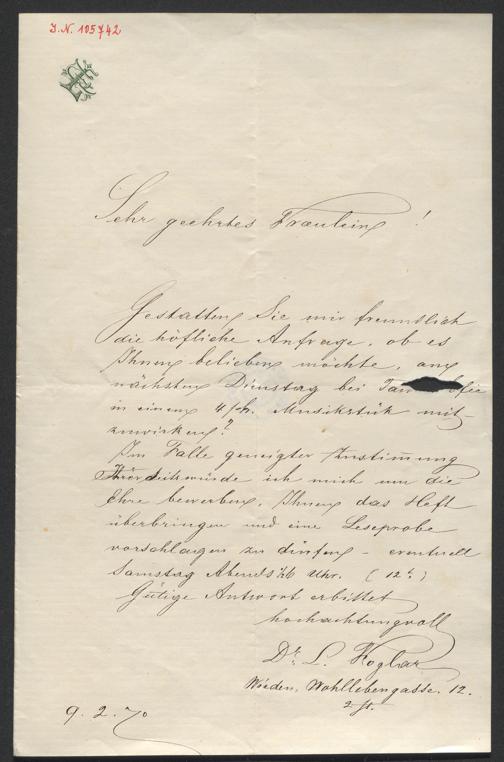 J.N. 105742
Sehr geehrtes Fräulein!
Gestatten Sie mir freundlich
die höfliche Anfrage, ob es
Ihnen belieben möchte, am
nächsten Dienstag bei
in einem 4/h. Musikstük mit-
zuwirken?
Im Falle geneigter Zustimmung
würde ich mich um die
Ehre bewerben, Ihnen das Heft
überbringen und eine Leseprobe
vorschlagen zu dürfen – eventuell
Samstag Abends Uhr. (12t.)
Gütige Antwort erbittet
hochachtungsvoll
Dr. L. Koglar
Wieden, Wohllebengasse. 12.
2. St.
9.2.70